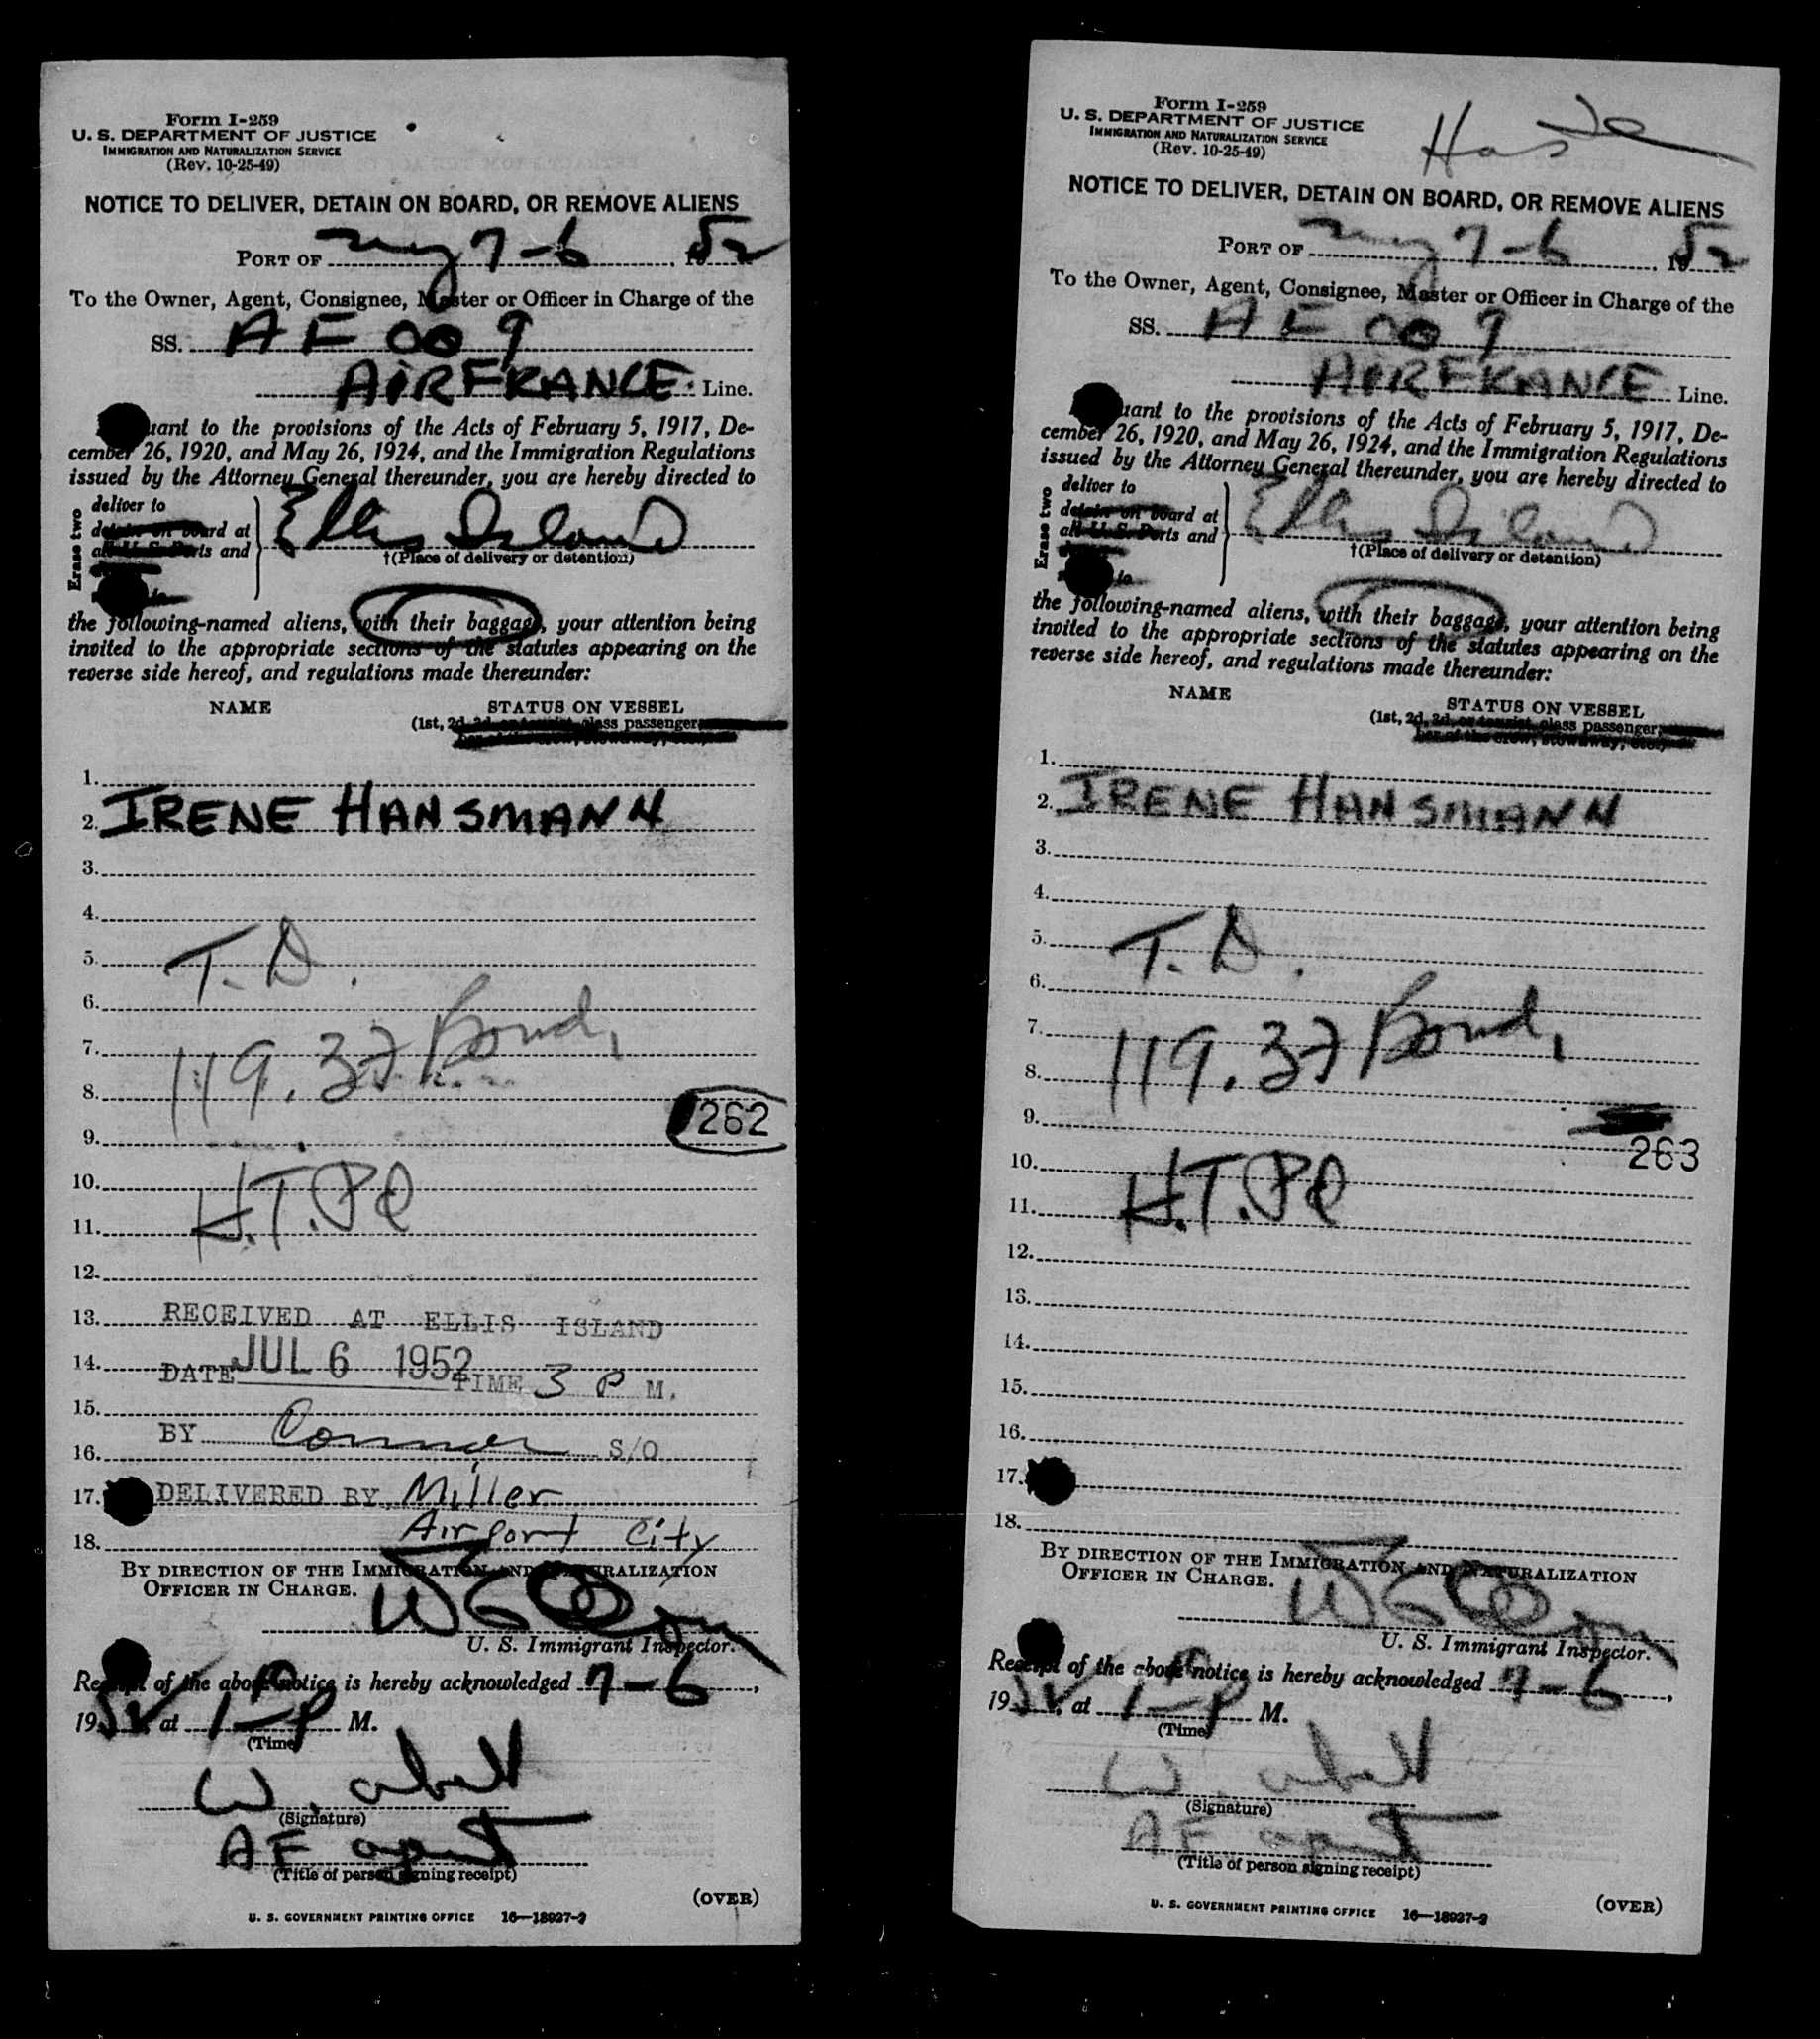 Form I-259
U. S. DEPARTMENT OF JUSTICE
IMMIGRATION AND NATURALIZATION SERVICE
(Rev. 10-25-49)
NOTICE TO DELIVER, DETAIN ON BOARD, OR REMOVE ALIENS
PORT OF NY 7-6, 1952
To the Owner, Agent, Consignee, Master or Officer in Charge of the
SS. AF 009
AIR FRANCE Line.
uant to the provisions of the Acts of February 5, 1917, De-
cember 26, 1920, and May 26, 1924, and the Immigration Regulations
issued by the Attorney General thereunder, you are hereby directed to
Erase two
deliver to
detain on board at
all U. S. Ports and
to
Ellis Island
†(Place of delivery or detention)
the following-named aliens, with their baggage, your attention being
invited to the appropriate sections of the statutes appearing on the
reverse side hereof, and regulations made thereunder:
NAME STATUS ON VESSEL
(1st, 2d, 3d, or tourist class passenger
ber of the crew, stowaway, etc.)
1.
2. IRENE HANSMANN
3.
4.
5. T. D.
6.
7. 119.37 Bond,
8.
262
9.
10.
11. H.T.PQ
12.
13. RECEIVED AT ELLIS ISLAND
14. DATE JUL 6 1952 TIME 3 P M.
15.
BY Connor S/O
16.
17. DELIVERED BY Miller
18. Airport City
BY DIRECTION OF THE IMMIGRATION AND NATURALIZATION
OFFICER IN CHARGE.
U. S. Immigrant Inspector.
Receipt of the above notice is hereby acknowledged 7-6,
1952, at 1-P M.
(Time)
W.
(Signature)
AF agent
(Title of person signing receipt)
(OVER)
U. S. GOVERNMENT PRINTING OFFICE 16—18937-2
Form I-259
U. S. DEPARTMENT OF JUSTICE
IMMIGRATION AND NATURALIZATION SERVICE
(Rev. 10-25-49)
NOTICE TO DELIVER, DETAIN ON BOARD, OR REMOVE ALIENS
PORT OF NY 7-6, 1952
To the Owner, Agent, Consignee, Master or Officer in Charge of the
SS. AF 009
AIR FRANCE Line.
uant to the provisions of the Acts of February 5, 1917, De-
cember 26, 1920, and May 26, 1924, and the Immigration Regulations
issued by the Attorney General thereunder, you are hereby directed to
Erase two
deliver to
detain on board at
all U. S. Ports and
to
Ellis Island
†(Place of delivery or detention)
the following-named aliens, with their baggage, your attention being
invited to the appropriate sections of the statutes appearing on the
reverse side hereof, and regulations made thereunder:
NAME STATUS ON VESSEL
(1st, 2d, 3d, or tourist class passenger,
ber of the crew, stowaway, etc.)
1.
2. IRENE HANSMANN
3.
4.
5. T. D.
6.
7. 119.37 Bond,
8.
9.
263
10.
11. H.T.PQ
12.
13.
14.
15.
16.
17.
18.
BY DIRECTION OF THE IMMIGRATION AND NATURALIZATION
OFFICER IN CHARGE.
U. S. Immigrant Inspector.
Receipt of the above notice is hereby acknowledged 7-6,
1952, at 1-P M.
(Time)
W.
(Signature)
AF agent
(Title of person signing receipt)
(OVER)
U. S. GOVERNMENT PRINTING OFFICE 16—18937-2